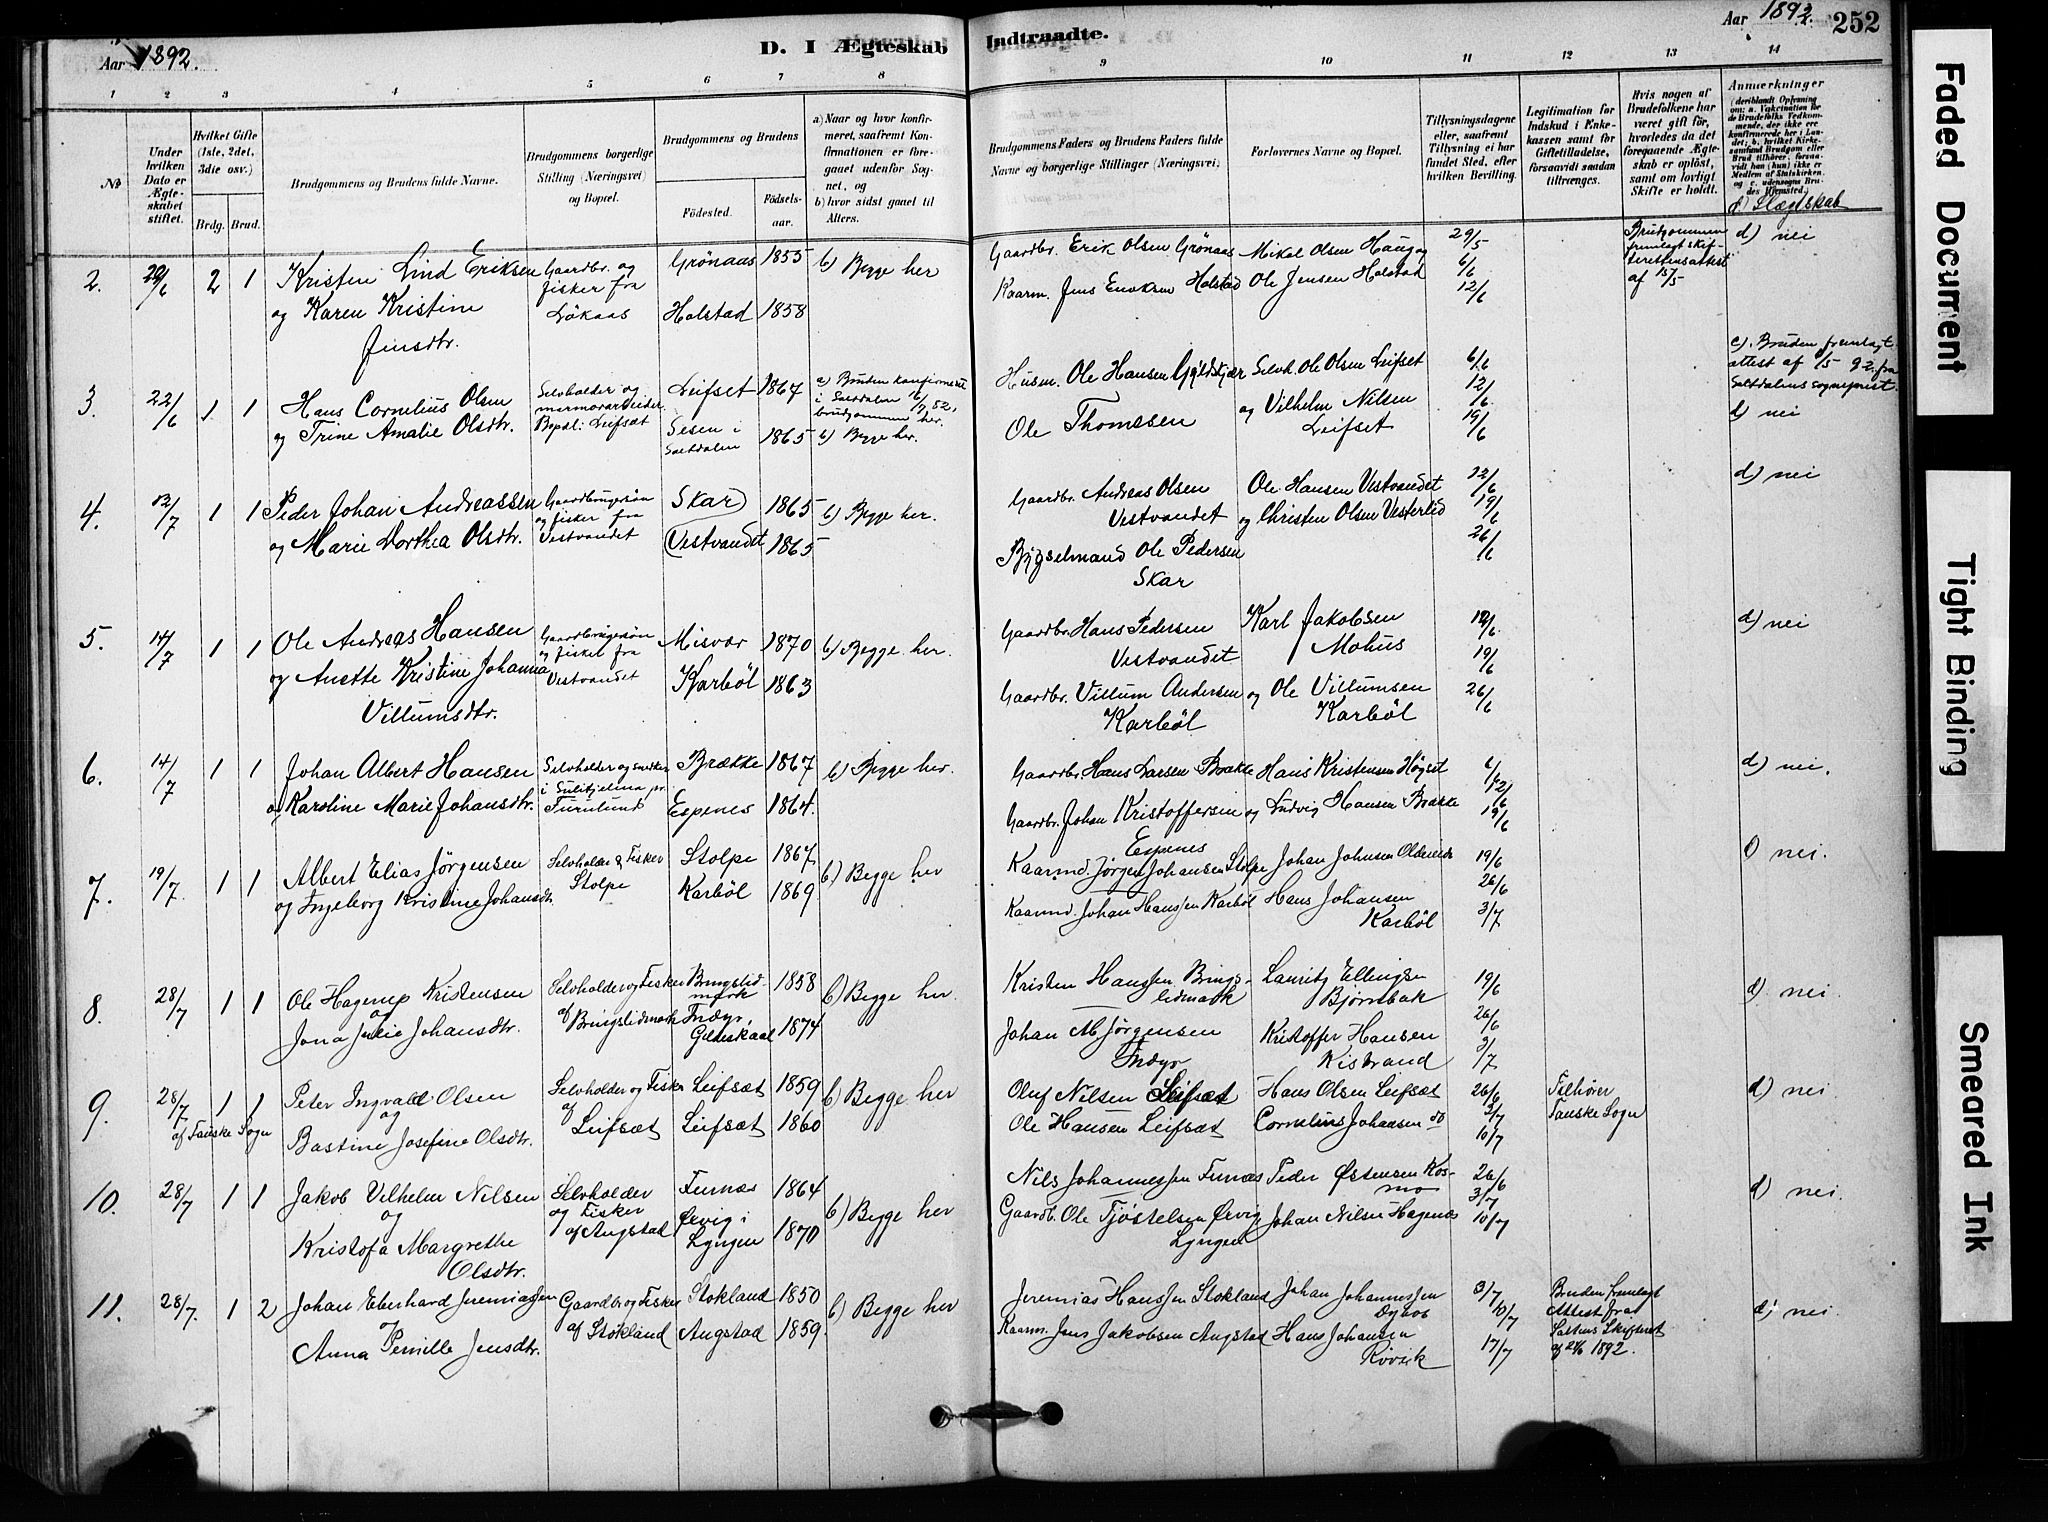 Aar 1892.
D. I Ægteskab
Indtraadte.
Aar 1892.
252
1 2 3 4 5 6 7 8
9 10 11 12 13 14
No
Under hvilken Dato er Ægteskabet stiftet.
Hvilket Gifte (1ste, 2det, 3die osv.)
Brdg. Brud.
Brudgommens og Brudens fulde Navne.
Brudgommens borgerlige Stilling (Næringsvei) og Bopæl.
Brudgommens og Brudens
Fødested.
Fødselsaar.
a) Naar og hvor konfirmeret, saafremt Konfirmationen er foregaaet udenfor Sognet, og
b) hvor sidst gaaet til Alters.
Brudgommens Faders og Brudens Faders fulde Navne og borgerlige Stillinger (Næringsvei)
Forlovernes Navne og Bopæl.
Tillysningsdagene eller, saafremt Tillysning ei har fundet Sted, efter hvilken Bevilling.
Legitimation for Indskud i Enkekassen samt for Giftetilladelse, forsaavidt saadan tiltrænges.
Hvis nogen af Brudefolkene har været gift før, hvorledes da det foregaaende Ægteskab er opløst, samt om lovligt Skifte er holdt.
Anmærkninger
(deriblandt Oplysning om: a. Vakcination for de Brudefolks Vedkommende, der ikke ere konfirmerede her i Landet; b. hvilket Kirkesamfund Brudgom eller Brud tilhører, forsaavidt han (hun) ikke er Medlem af Statskirken, og c. udensogns Brudes Hjemsted.)
d) Slægtskab
2. 29/6 2 1
Kristen Lind Eriksen
og Karen Kristine
Jensdtr.
Gaardbr. og
fisker fra
Løkaas
Grønaas 1855
Holstad 1858
b) Begge her
Gaardbr. Erik Olsen Grønaas
Kaarm. Jens Enoksen Holstad
Mikal Olsen Haug og
Ole Jensen Holstad
29/5
6/6
12/6
Brudgommen
fremlagt skif-
terettensattest
af 15/5
d) nei
3. 22/6 1 1
Hans Cornelius Olsen
og Trine Amalie Olsdtr.
Selvholder og
marmorarbeider
Bopæl: Leifsæt
Leifset 1867
Sesen i
Saltdalen 1865
a) Bruden konfirmeret
i Saltdalen
brudgommen her.
b) Begge her.
Husm. Ole Hansen Gyldskjær
Ole Thomssen
Selvh. Ole Olsen Leifset
og Vilhelm Nilsen
Leifset
6/6
12/6
19/6
c). Bruden fremlagt
attest af 1/5 92 fra
Saltdalens sogneprest.
d) nei
4. 13/7 1 1
Peder Johan Andreassen
og Marie Dorthea Olsdtr.
Gaardbrugersøn
og fisker fra
Vestvandet
Skar 1865
Vestvandet 1865
b) Begge her.
Gaardbr. Andreas Olsen
Vestvandet
Bygselmand Ole Pedersen
Skar
Ole Hansen Vestvandet
og Christen Olsen Vesterlid
12/6
19/6
26/6
d) nei
5. 14/7 1 1
Ole Andreas Hansen
og Anette Kristine Johanna
Villumsdtr.
Gaardbrugersøn
og fisker fra
Vestvandet
Misvær 1870
Karbøl 1863
b) Begge her.
Gaardbr. Hans Pedersen
Vestvandet
Gaardbr. Villum Andersen
Karbøl
Karl Jakobsen
Mohus
og Ole Villumsen
Karbøl
12/6.
19/6
26/6
d) nei
6. 14/7 1 1
Johan Albert Hansen
og Karoline Marie Johansdtr.
Selvholder og snedker
i Sulitjelma pr.
Furulund
Brække 1867
Espenes 1864.
b) Begge her.
Gaardbr. Hans Larsen Brække
Gaardbr. Johan Kristoffersen
Espenes
Hans Kristensen Høgset
og Ludvig Hansen Brække
6/6
12/6
19/6
d) nei.
7. 19/7. 1 1
Albert Elias Jørgensen
og Ingeborg Kristine Johansdtr.
Selvholder & Fisker
Stolpe
Stolpe 1867
Karbøl 1869
b) Begge her
Kaarmd. Jørgen Johansen Stolpe
Kaarmd. Johan Hanssen Karbøl
Johan Johnsen Oldereide
Hans Johansen
Karbøl
19/6
26/6
3/7
nei.
8. 28/7 1 1
Ole Hagerup Kristensen
og
Jona Julie Johansdtr.
Selvholder og Fisker
af Bringslidmark
Bringslid-
mark 1858
Indyr,
Gildeskaal 1874
b) Begge her.
Kristen Hanssen Brings-
lidmark
Johan M Jørgensen
Indyr
Lauritz Ellingsen
Bjørnbak
Kristoffer Hansen
Kistrand
19/6
26/6
3/7
d) nei.
9. 28/7 1 1
af Fauske Sogn
Peter Ingvald Olsen
og
Bastine Josefine Olsdtr.
Selvholder og Fisker
af
Leifsæt
Leifsæt 1859
Leifsæt 1860
b) Begge her
Oluf Nilsen Leifsæt
Ole Hansen Leifsæt
Hans Olsen Leifsæt
Cornelius Johansen do
26/6
3/7
10/7
Tilhører
Fauske Sogn
d) nei.
10. 28/7 1 1
Jakob Vilhelm Nilsen
og
Kristofa Margrethe
Olsdtr.
Selvholder
og Fisker
af Angstad
Furnæs 1864
Ørvig i
Lyngen 1870
b) Begge her
Nils Johannessen Furnæs
Gaardb. Ole Tjøstelsen Ørvig
Lyngen
Peder Østensen Kos-
mo
Johan Nilsen Hagenæs
26/6
3/7
10/7
d) nei.
11. 28/7. 1 2
Johan Eberhard Jeremiassen
og
Anna Pernille Jensdtr.
Gaardbr og Fisker
af Stokland
Stokland 1850
Angstad 1859.
b) Begge her
Jeremias Hanssen Stokland
Kaarm. Jens Jakobsen Angstad
Johan Johannessen
Hans Johansen
Røvik
3/7
10/7
17/7
Bruden fremlagt
Attest fra
Saltens Skifteret
1892.
d) nei
Faded Document
Tight Binding
Smeared Ink